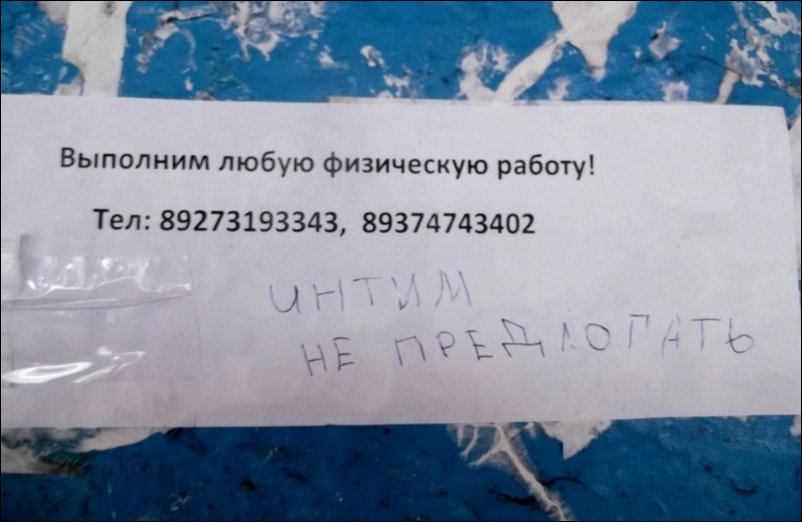 Выполним любую физическую работу!
Тел: 89273193343, 89374743402
ИНТИМ
НЕ ПРЕДЛОГАТЬ